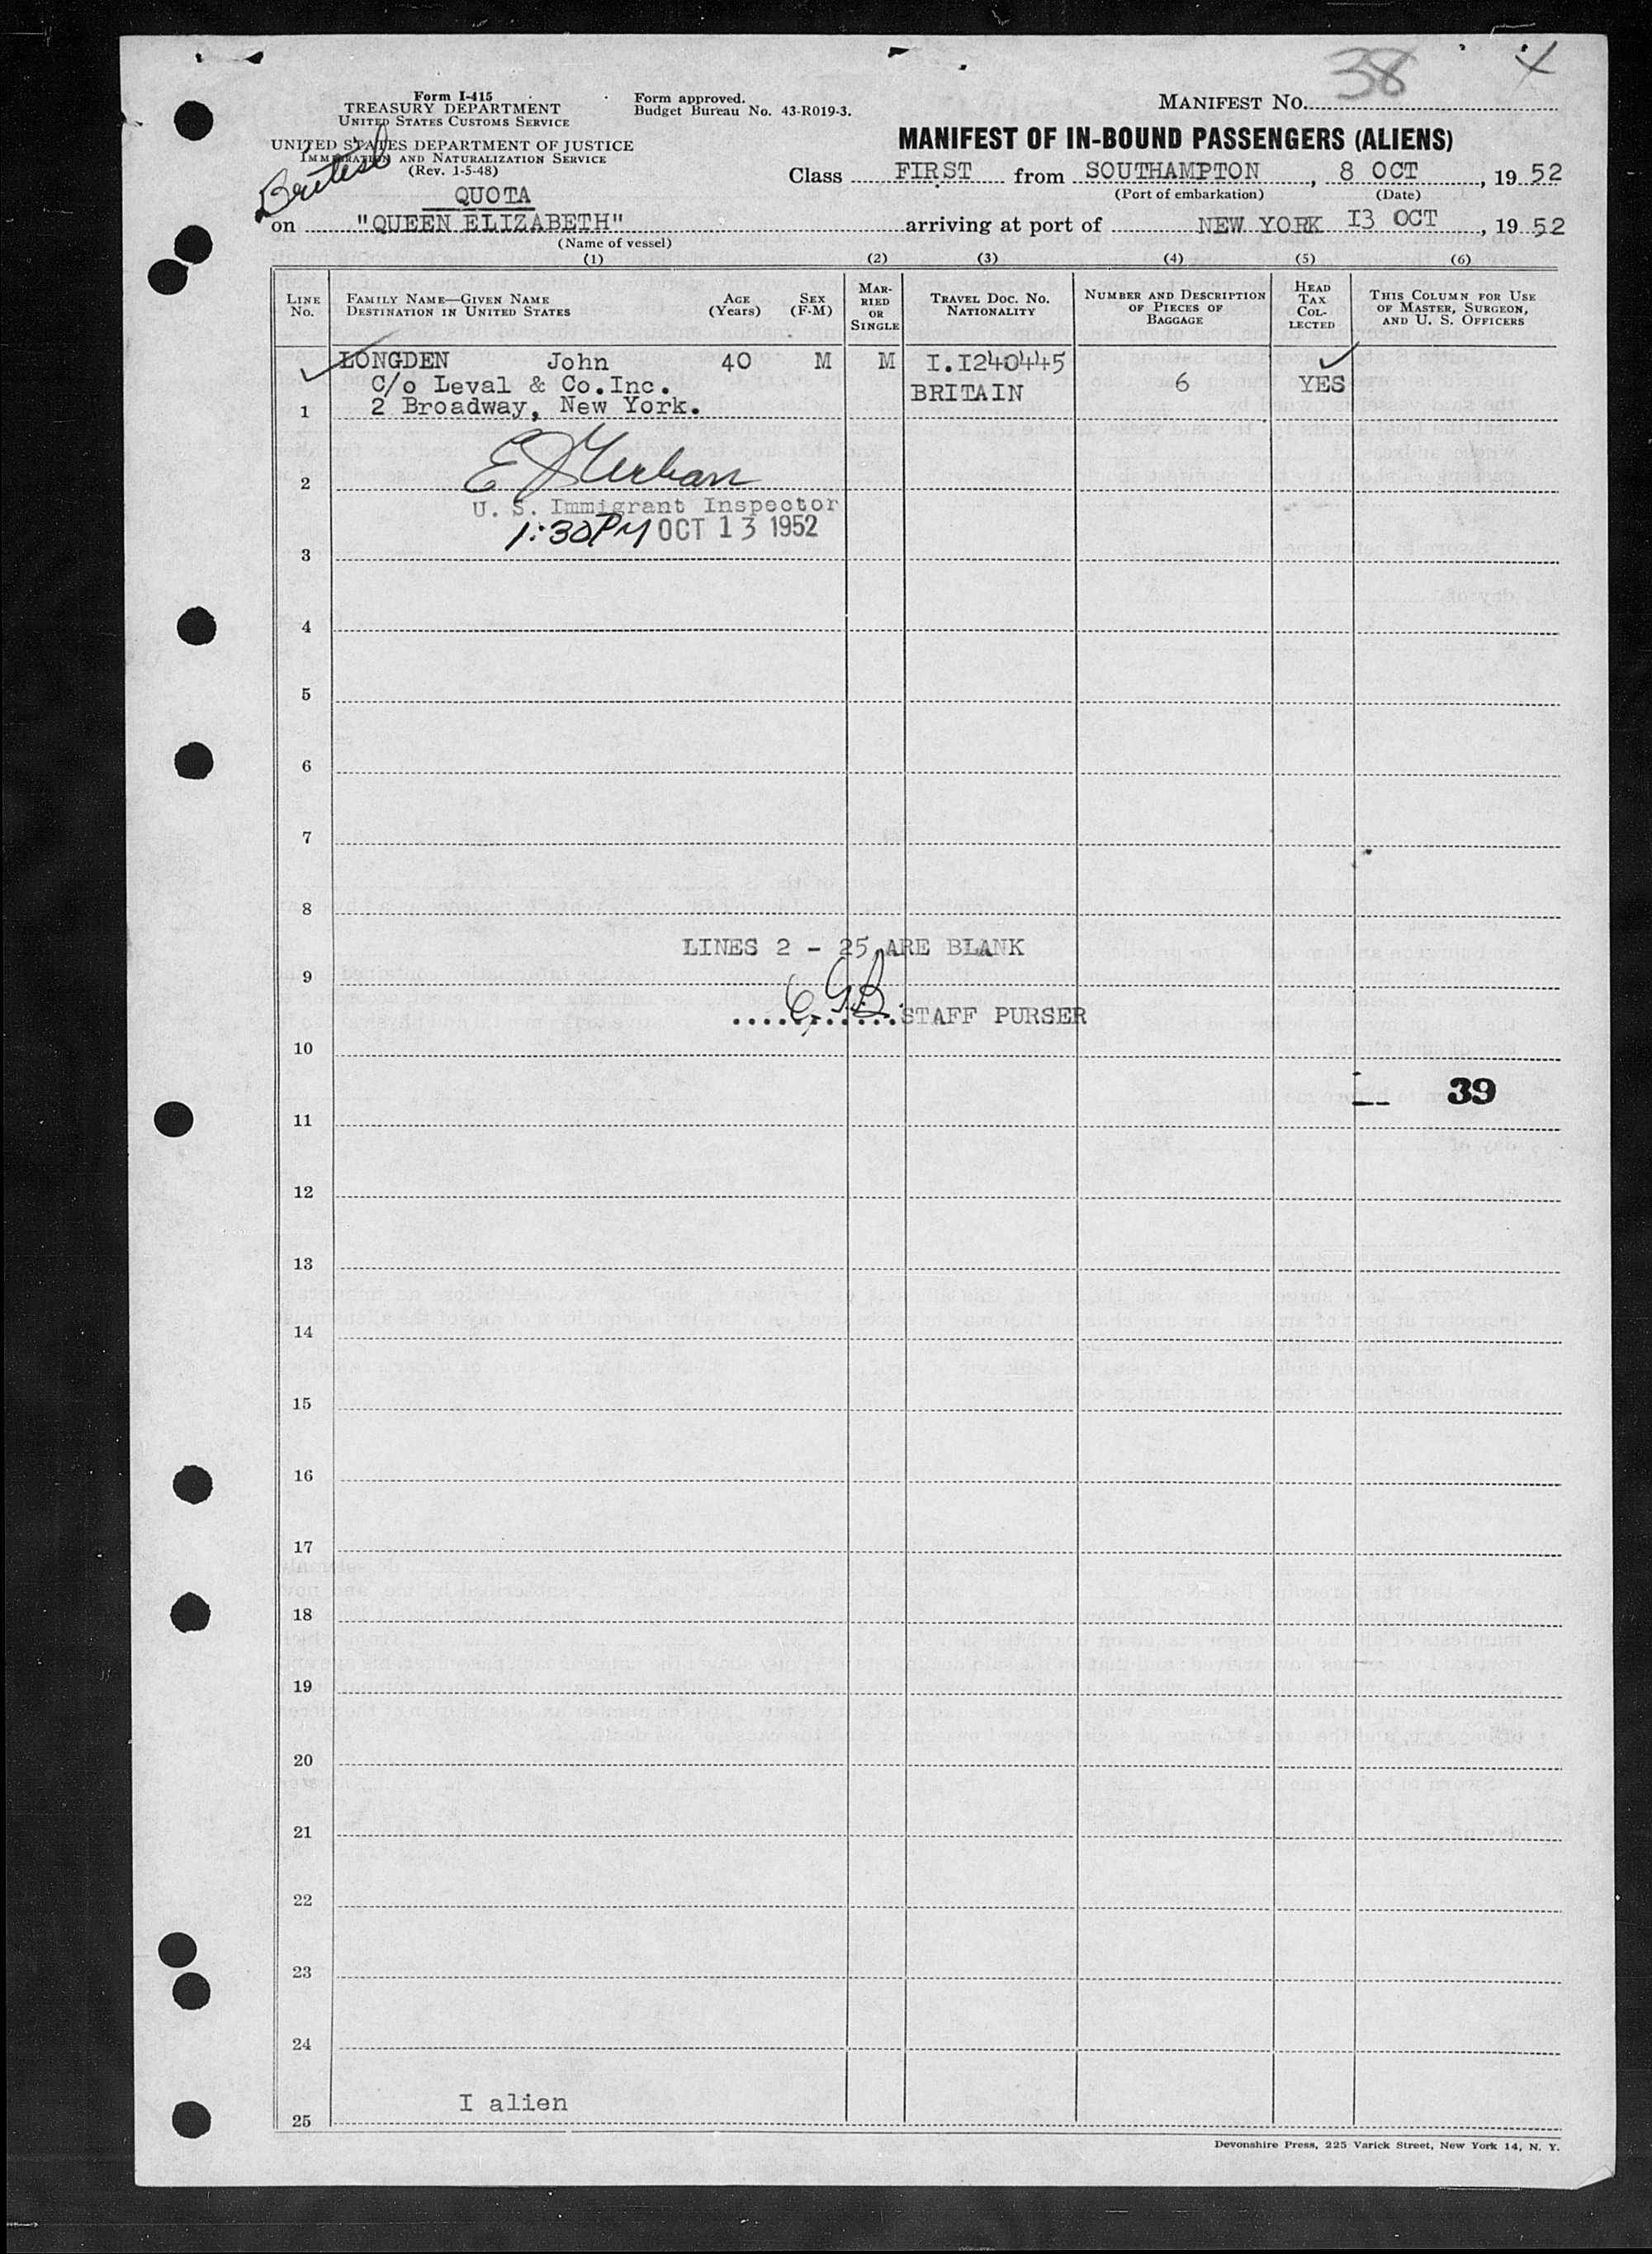 38 X
Form I-415
TREASURY DEPARTMENT
UNITED STATES CUSTOMS SERVICE
Form approved.
Budget Bureau No. 43-R019-3.
MANIFEST No.
UNITED STATES DEPARTMENT OF JUSTICE
IMMIGRATION AND NATURALIZATION SERVICE
(Rev. 1-5-48)
MANIFEST OF IN-BOUND PASSENGERS (ALIENS)
British
QUOTA
Class FIRST from SOUTHAMPTON, 8 OCT, 1952
(Port of embarkation) (Date)
on "QUEEN ELIZABETH" arriving at port of NEW YORK I3 OCT, 1952
(Name of vessel)
(1) (2) (3) (4) (5) (6)
LINE No.
FAMILY NAME—GIVEN NAME
DESTINATION IN UNITED STATES
AGE (Years)
SEX (F-M)
MARRIED OR SINGLE
TRAVEL DOC. NO.
NATIONALITY
NUMBER AND DESCRIPTION OF PIECES OF BAGGAGE
HEAD TAX COLLECTED
THIS COLUMN FOR USE OF MASTER, SURGEON, AND U. S. OFFICERS
LONGDEN John 40 M M I.I240445
C/o Leval & Co.Inc. BRITAIN 6 YES
1 2 Broadway, New York.
2
U. S. Immigrant Inspector
1:30PM OCT 13 1952
3
4
5
6
7
8
LINES 2 - 25 ARE BLANK
9
...........STAFF PURSER
10
39
11
12
13
14
15
16
17
18
19
20
21
22
23
24
I alien
25
Devonshire Press, 225 Varick Street, New York 14, N. Y.